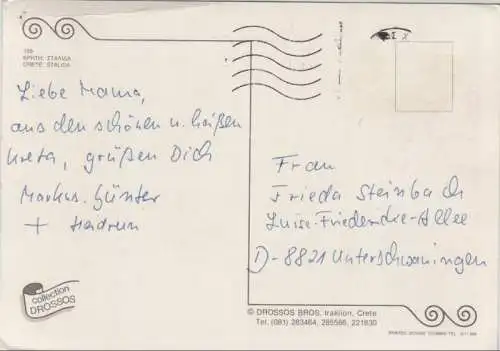 159
ΚΡΗΤΗ: ΣΤΑΛΙΔΑ
CRETE: STALIDA
Liebe Mama,
aus den schönen u. heißen
Kreta, grüßen Dich
Markus. Günter
+ Heidrun
Frau
Frieda Steinbach
Luise-Friedericke-Allee
D-8821 Unterschwaningen
collection
DROSSOS
© DROSSOS BROS. Iraklion, Crete
Tel. (081) 283464, 285586, 221830